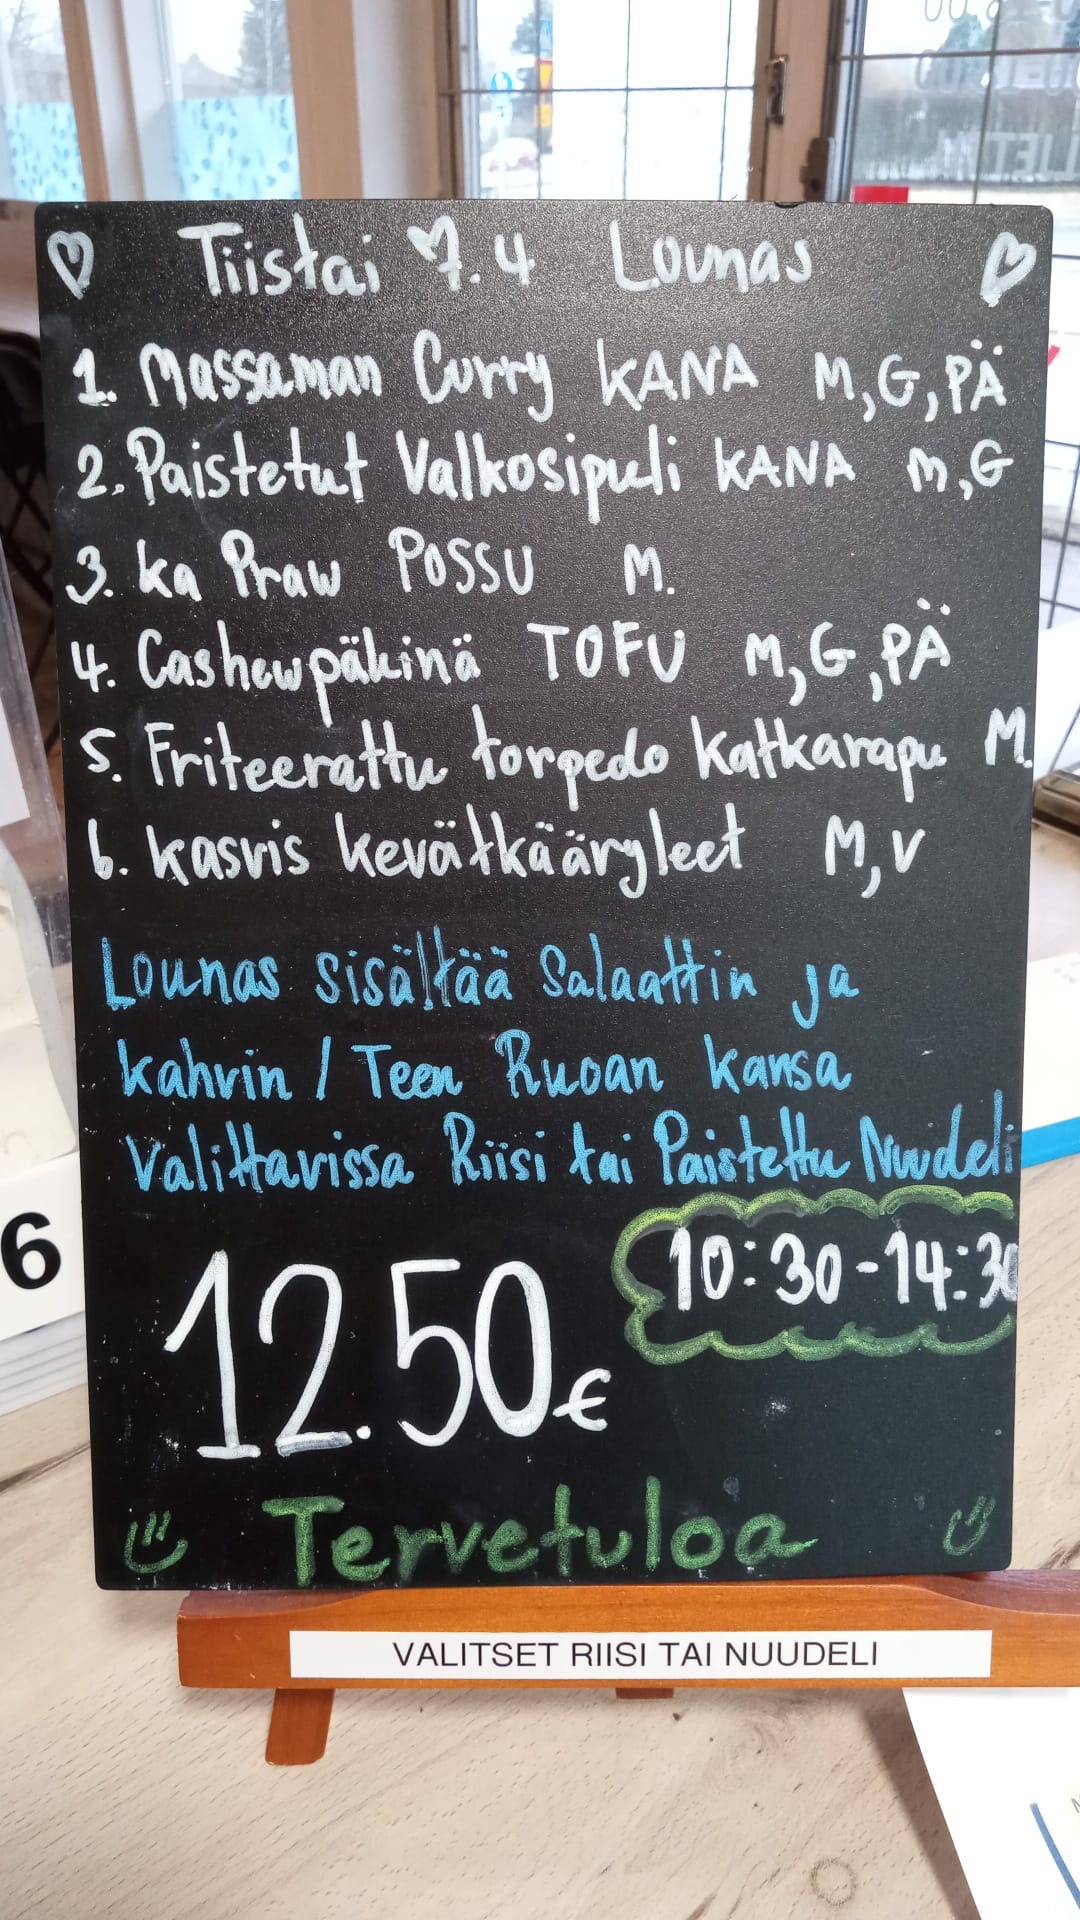 Tiistai 7.4 Lounas
1. Massaman Curry KANA M,G,PÄ
2. Paistetut Valkosipuli KANA M,G
3. ka Praw POSSU M.
4. Cashewpäkinä TOFU M,G,PÄ
5. Friteerattu torpedo katkarapu M.
6. kasvis kevätkääryleet M,V
Lounas sisältää Salaattin ja
kahvin / Teen Ruoan kansa
Valittavissa Riisi tai Paistettu Nuudeli
10:30-14:30
12.50€
Tervetuloa
VALITSET RIISI TAI NUUDELI
6